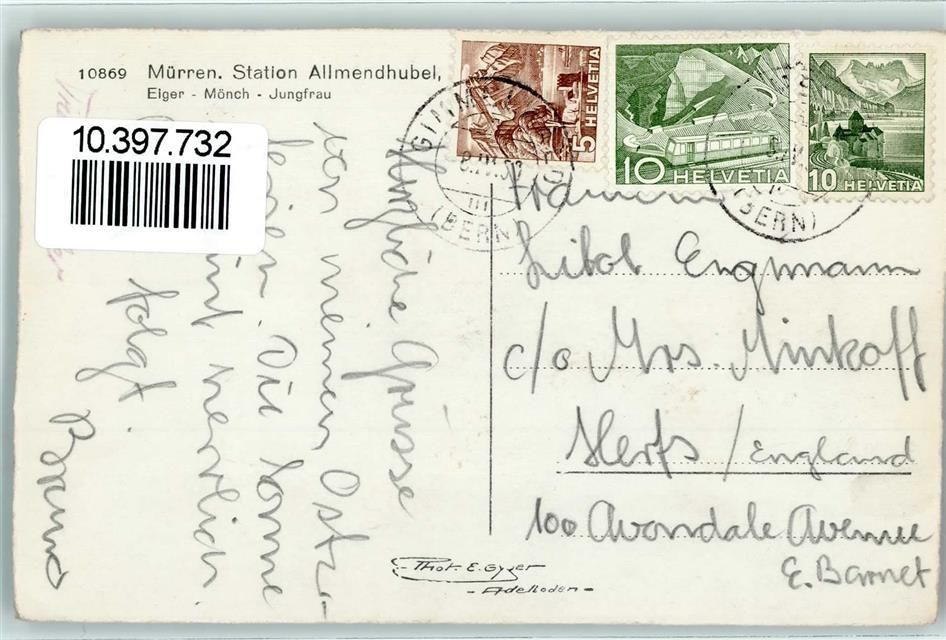 10869 Mürren. Station Allmendhubel,
Eiger - Mönch - Jungfrau
10.397.732
5 HELVETIA
10 HELVETIA
10 HELVETIA
GIMMELW
(BERN)
(BERN)
Herzliche Grüsse
von meinen Oster-
ferien. Die Sonne
herrlich
folgt.
Bruno
Engmann
c/o Mrs. Minkoff
Herfs / England
100 Avondale Avenue
E. Barnet
Phot. E. Gyger
- Adelboden -